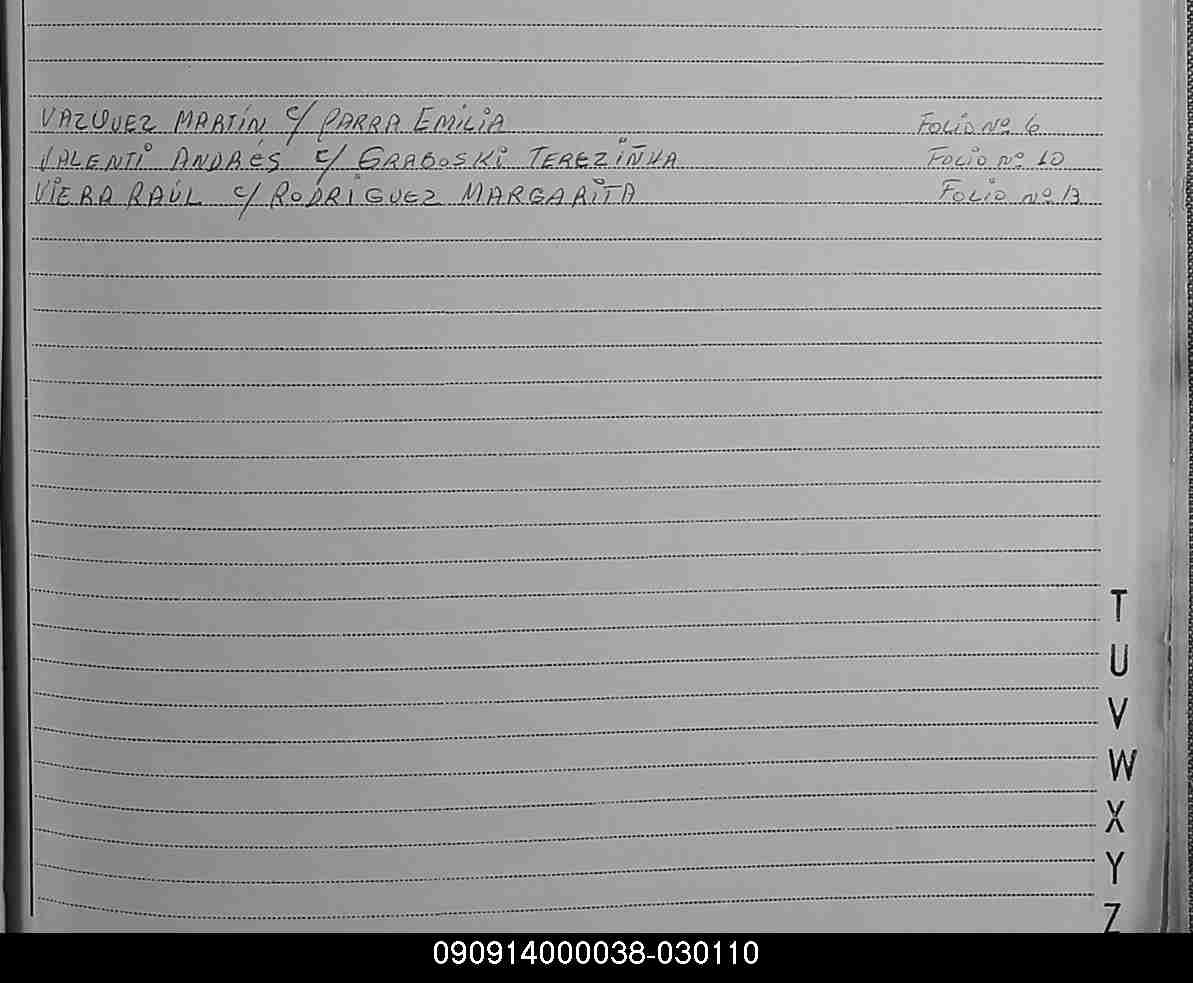 VAZQUEZ MARTÍN c/ PARRA EMILIA Folio Nº 6
VALENTI ANDRÉS c/ GRABOSKI TEREZIÑHA Folio Nº 10
VIERA RAÚL c/ RODRIGUEZ MARGARITA Folio Nº 13
T
U
V
W
X
Y
Z
090914000038-030110